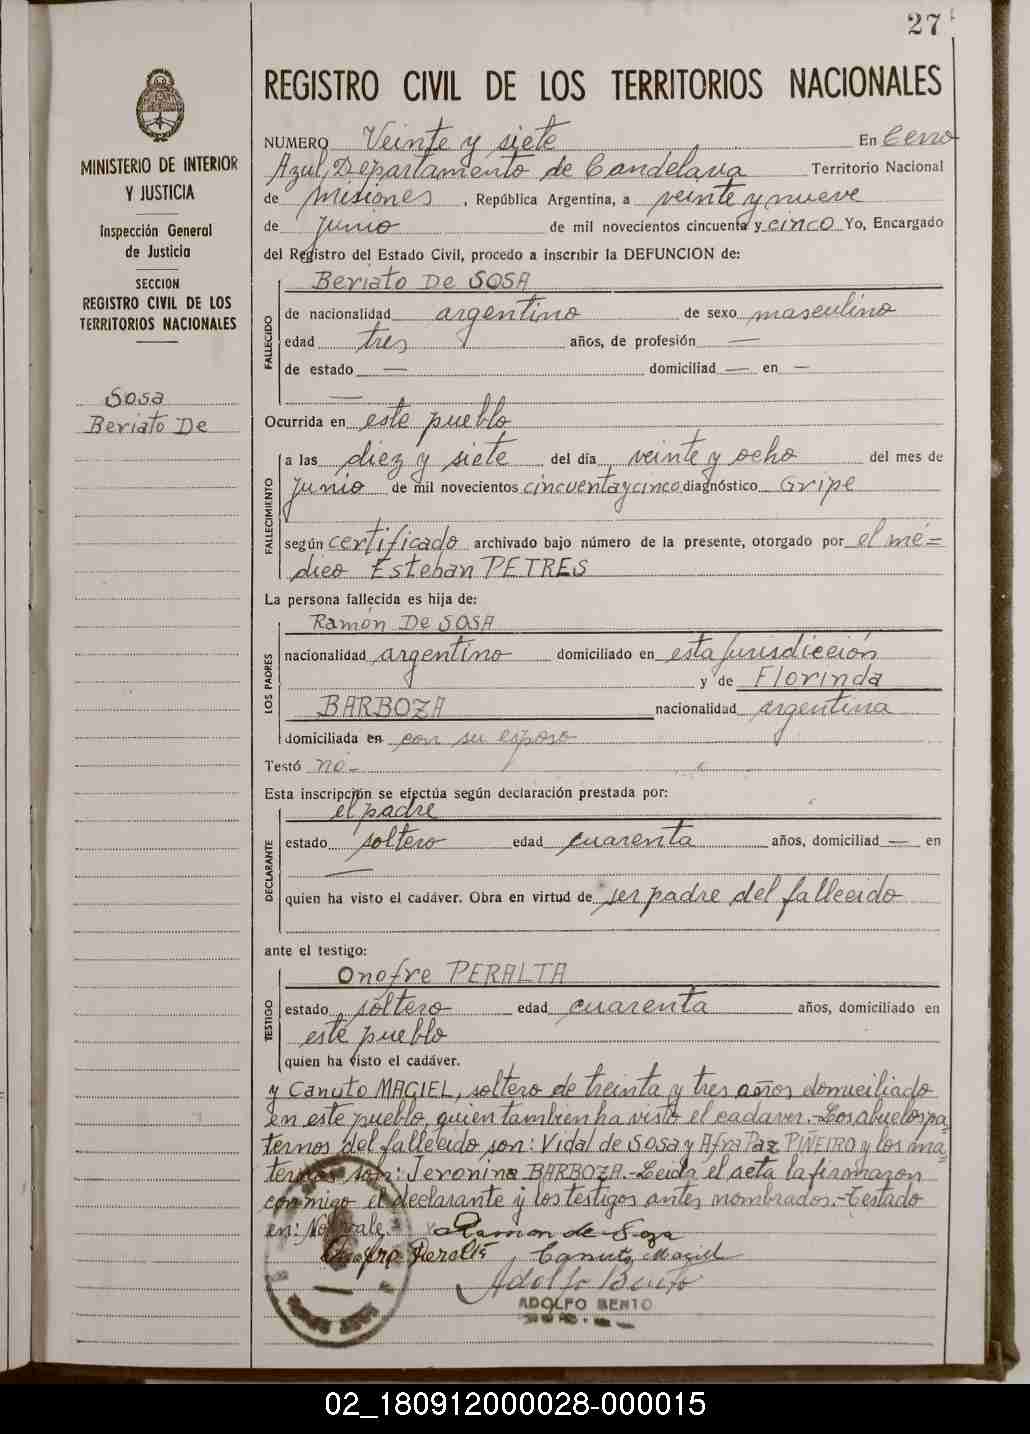 27
REGISTRO CIVIL DE LOS TERRITORIOS NACIONALES
MINISTERIO DE INTERIOR
Y JUSTICIA
Inspección General
de Justicia
SECCION
REGISTRO CIVIL DE LOS
TERRITORIOS NACIONALES
Sosa
Beriato De
NUMERO Veinte y siete En Cerro
Azul, Departamento de Candelaria Territorio Nacional
de Misiones, República Argentina, a veinte y nueve
de Junio de mil novecientos cincuenta y cinco Yo, Encargado
del Registro del Estado Civil, procedo a inscribir la DEFUNCION de:
FALLECIDO
Beriato De SOSA
de nacionalidad argentino de sexo masculino
edad tres años, de profesión —
de estado — domiciliad — en —
—
Ocurrida en este pueblo
FALLECIMIENTO
a las diez y siete del día veinte y ocho del mes de
Junio de mil novecientos cincuenta y cinco diagnóstico Gripe
según certificado archivado bajo número de la presente, otorgado por el mé=
dico Esteban PETRES
La persona fallecida es hija de:
LOS PADRES
Ramón De SOSA
nacionalidad argentino domiciliado en esta jurisdicción
y de Florinda
BARBOZA nacionalidad argentina
domiciliada en con su esposo
Testó no-
Esta inscripción se efectúa según declaración prestada por:
DECLARANTE
el padre
estado soltero edad cuarenta años, domiciliad — en
—
quien ha visto el cadáver. Obra en virtud de ser padre del fallecido
ante el testigo:
TESTIGO
Onofre PERALTA
estado soltero edad cuarenta años, domiciliado en
este pueblo
quien ha visto el cadáver.
y Canuto MACIEL, soltero de treinta y tres años domiciliado
en este pueblo, quien tambien ha visto el cadaver.- Los abuelos pa
ternos del fallecido son: Vidal de Sosa y Afra Paz PIÑEIRO y los ma
ternos son: Jeronina BARBOZA.- Leida el acta la firmaron
conmigo el declarante y los testigos antes nombrados.- Testado
en: No vale.
Ramon de Soza
Onofre Peralta Canuto Maciel
Adolfo Bento
ADOLFO BENTO
02_180912000028-000015